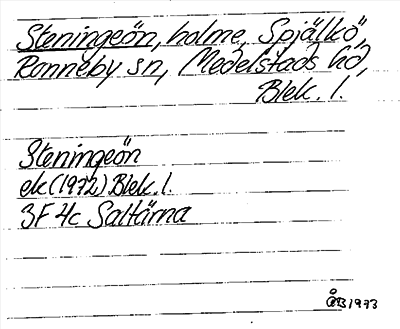 Steningeön, holme, Spjälkö,
Ronneby sn, Medelstads hd,
Blek. l.
Steningeön
ek (1972) Blek. l.
3F 4c Saltärna
ÅB 1973